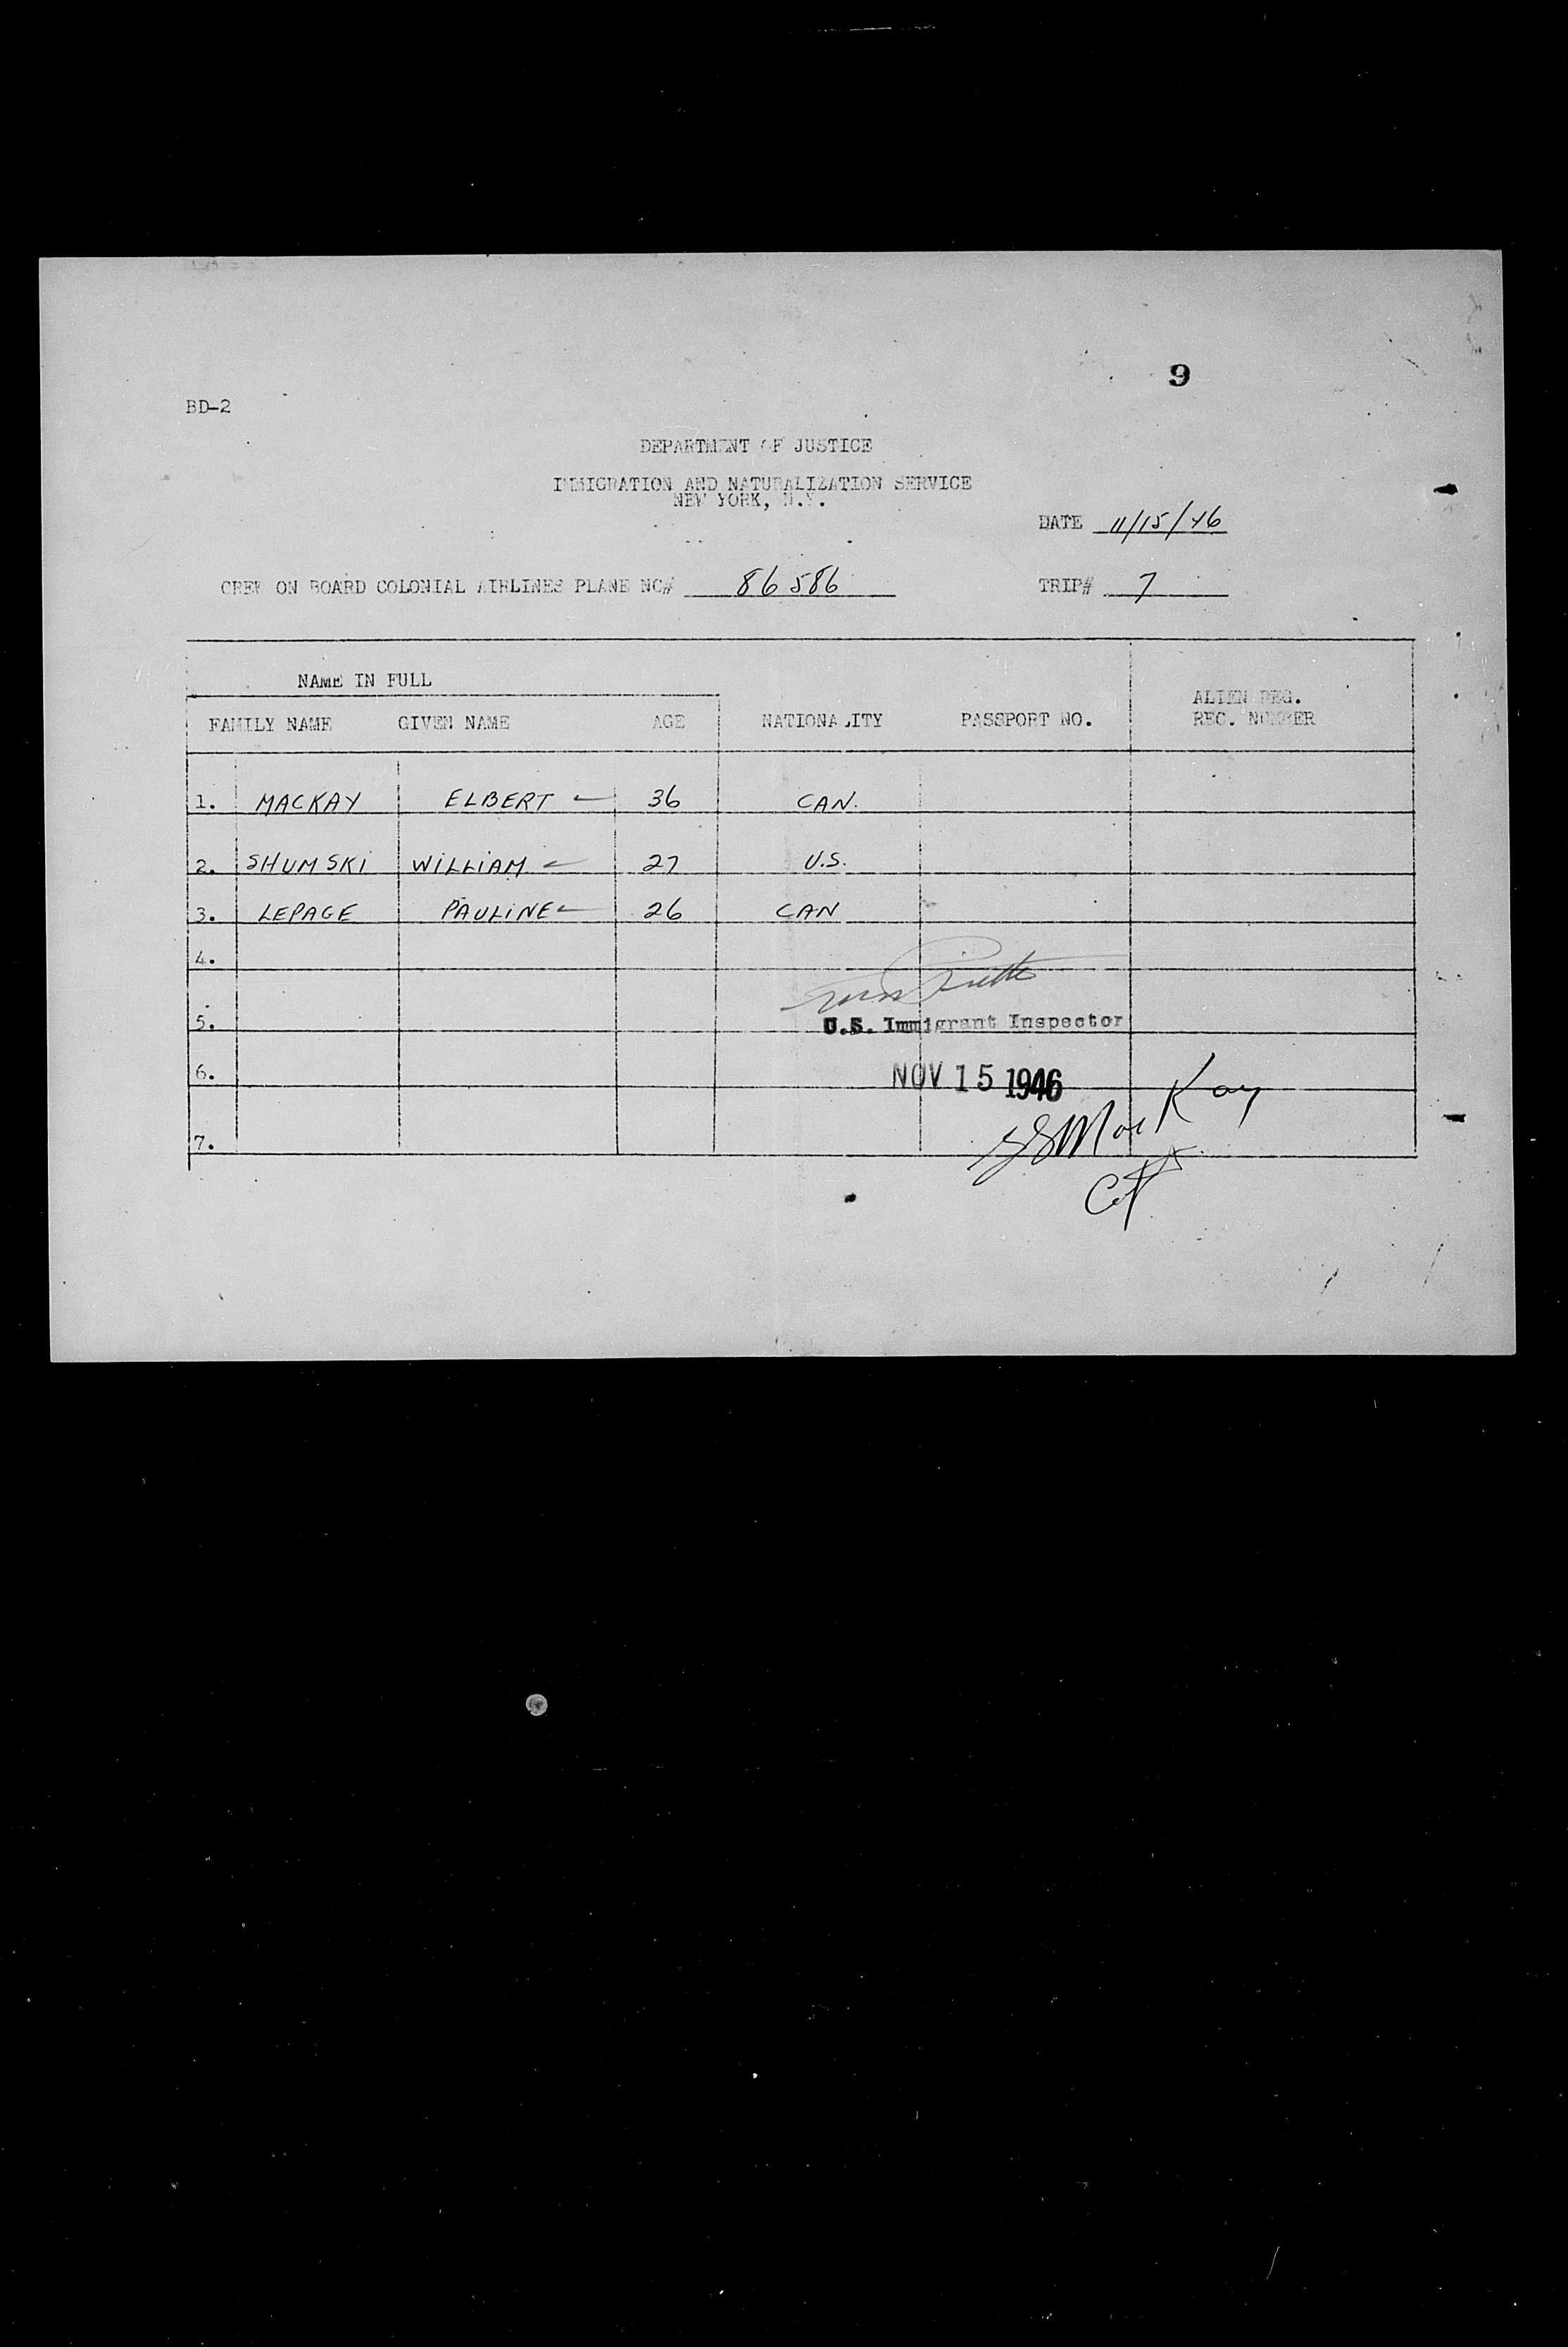 9
BD-2
DEPARTMENT OF JUSTICE
IMMIGRATION AND NATURALIZATION SERVICE
NEW YORK, N.Y.
DATE 11/15/46
CREW ON BOARD COLONIAL AIRLINES PLANE NC# 86586 TRIP# 7
NAME IN FULL
ALIEN REG.
FAMILY NAME GIVEN NAME AGE NATIONALITY PASSPORT NO. REC. NUMBER
1. MACKAY ELBERT 36 CAN.
2. SHUMSKI WILLIAM 27 U.S.
3. LEPAGE PAULINE 26 CAN
4.
5. U.S. Immigrant Inspector
6. NOV 15 1946
MacKay
7.